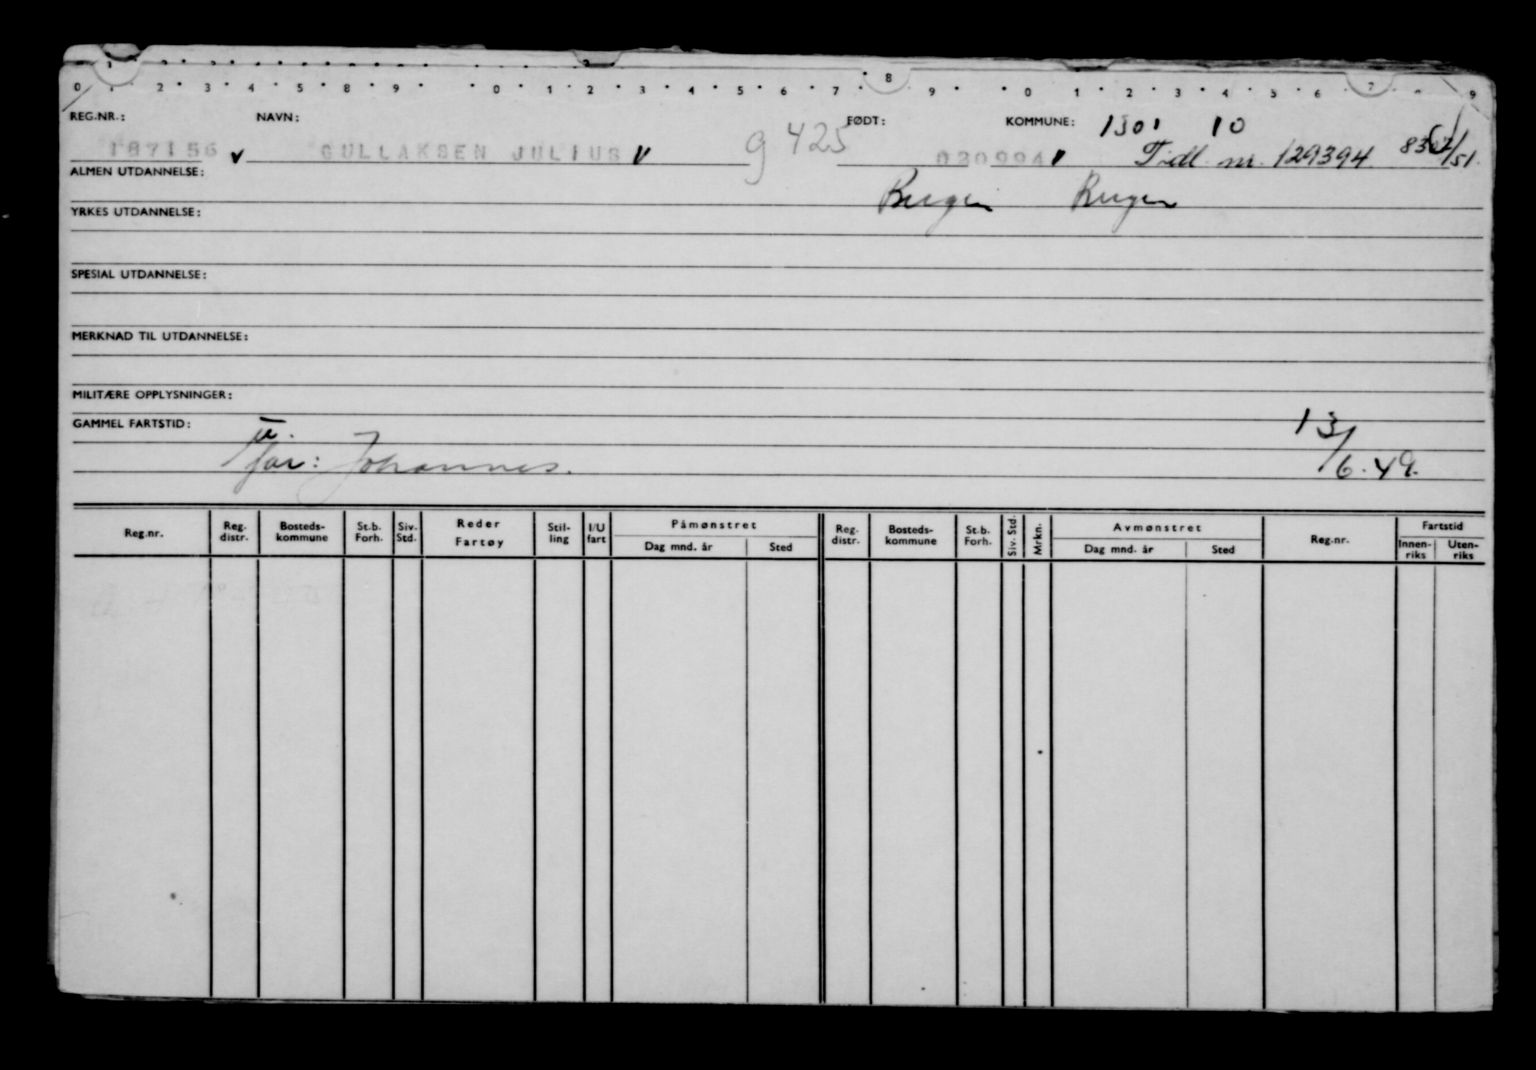 0 1 2 3 4 5 8 9 0 1 2 3 4 5 6 7 8 9 0 1 2 3 4 5 6 7 9
REG.NR.: NAVN: FØDT: KOMMUNE: 1301 10
187156 v GULLAKSEN JULIUS v g 425 020994 v Tidl. nr. 129394 /51.
ALMEN UTDANNELSE:
Bergen Bergen
YRKES UTDANNELSE:
SPESIAL UTDANNELSE:
MERKNAD TIL UTDANNELSE:
MILITÆRE OPPLYSNINGER:
GAMMEL FARTSTID:
13/6.49.
far: Johannes.
Reg.nr. Reg. distr. Bosteds-kommune St.b. Forh. Siv. Std. Reder Fartøy Stil-ling I/U fart Påmønstret Dag mnd. år Sted Reg. distr. Bosteds-kommune St.b. Forh. Siv. Std. Mrkn. Avmønstret Dag mnd. år Sted Reg.nr. Fartstid Innen-riks Uten-riks